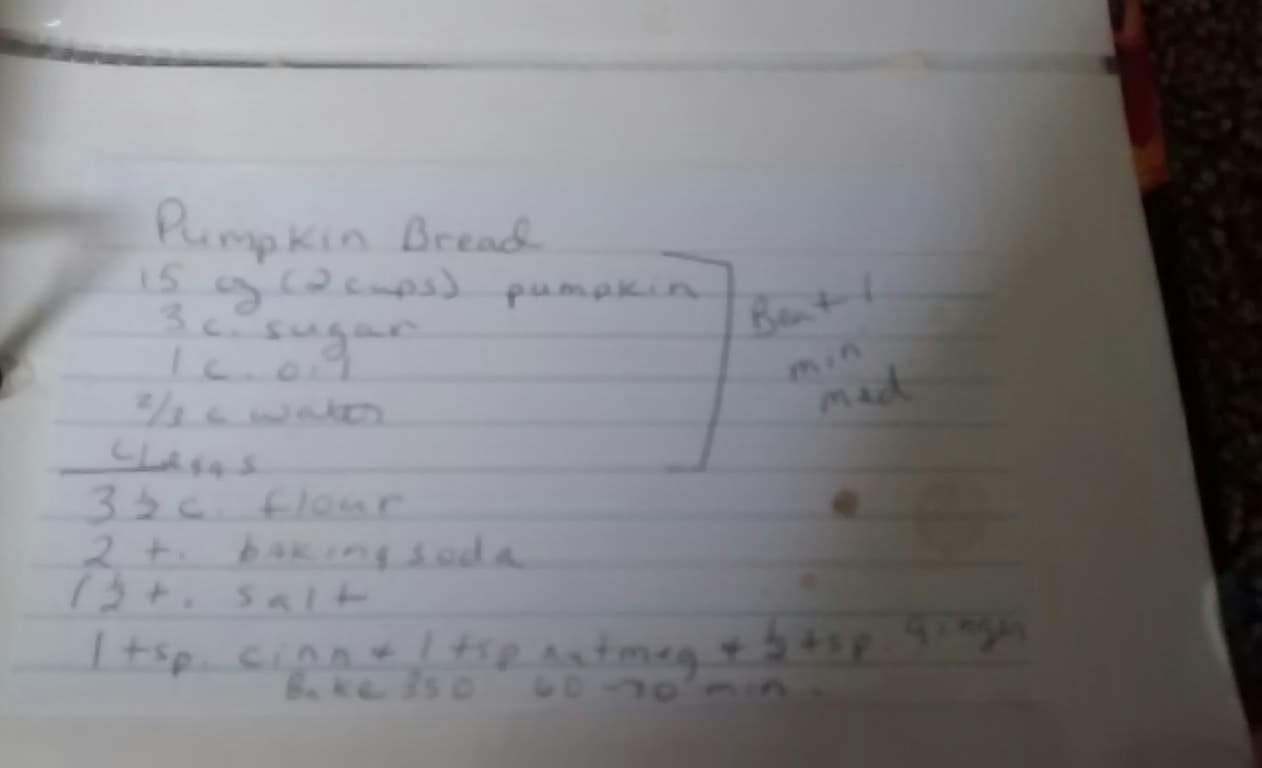 Pumpkin Bread
15 oz (2 cups) pumpkin
3 c. sugar
1 c. oil
2/3 c water
4 eggs
Beat 1
min
med
3 ½ c. flour
2 t. baking soda
1 ½ t. salt
1 tsp. cinn + 1 tsp nutmeg + ½ tsp. ginger
Bake 350 60-70 min.